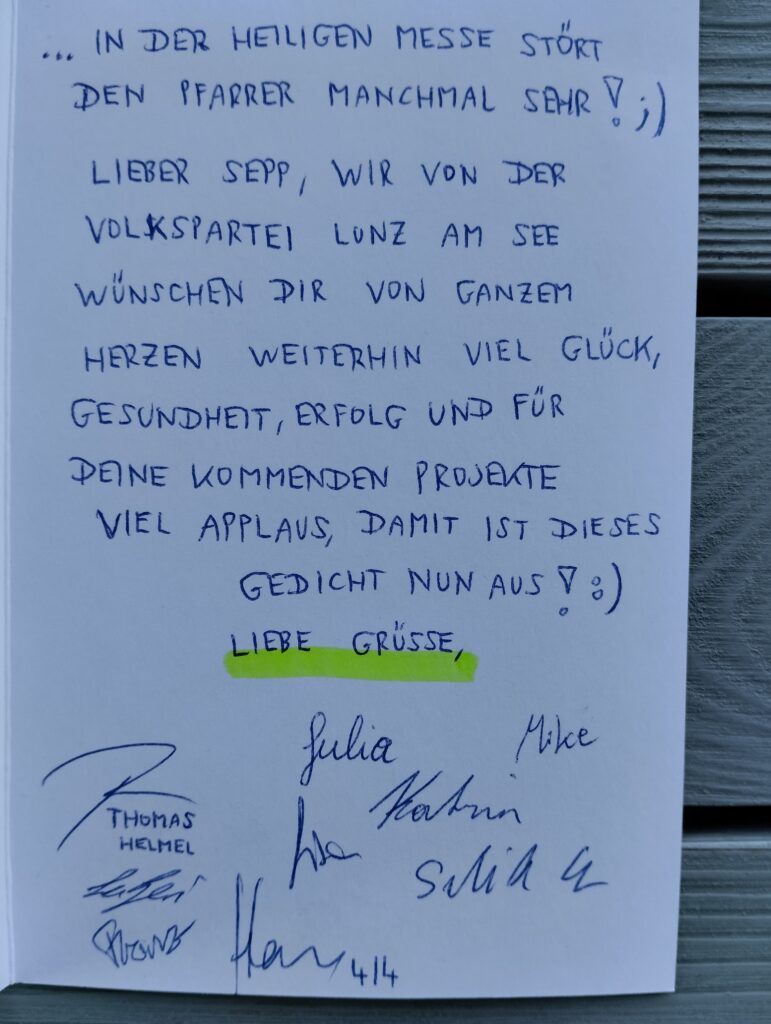 ... IN DER HEILIGEN MESSE STÖRT
DEN PFARRER MANCHMAL SEHR! ;)
LIEBER SEPP, WIR VON DER
VOLKSPARTEI LUNZ AM SEE
WÜNSCHEN DIR VON GANZEM
HERZEN WEITERHIN VIEL GLÜCK,
GESUNDHEIT, ERFOLG UND FÜR
DEINE KOMMENDEN PROJEKTE
VIEL APPLAUS, DAMIT IST DIESES
GEDICHT NUN AUS! :)
LIEBE GRÜSSE,
Julia Mike
THOMAS
HELMEL
Katrin
Lisa
4/4